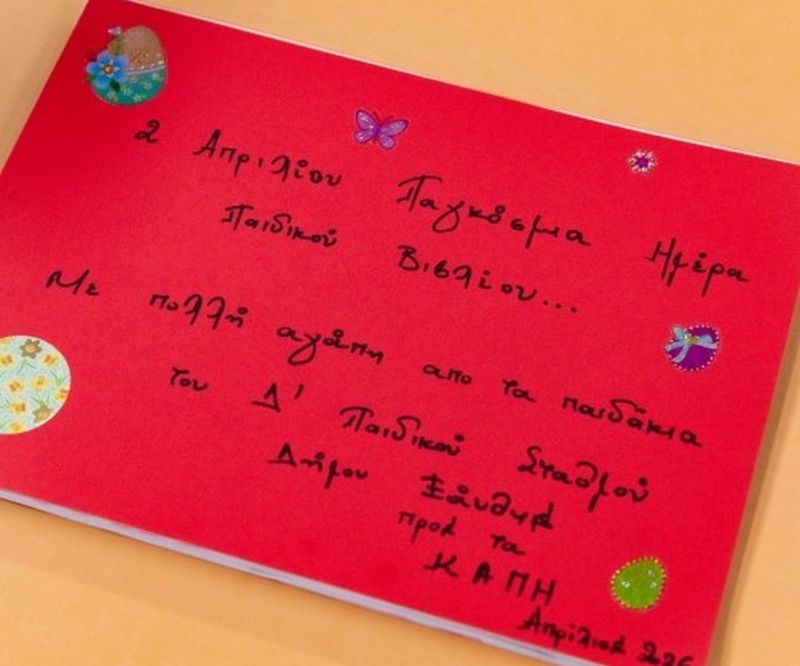 2 Απριλίου Παγκόσμια Ημέρα
Παιδικού Βιβλίου...
Με πολλή αγάπη απο τα παιδάκια
του Δ' Παιδικού Σταθμού
Δήμου Ξάνθης
προς τα
ΚΑΠΗ
Απρίλιος